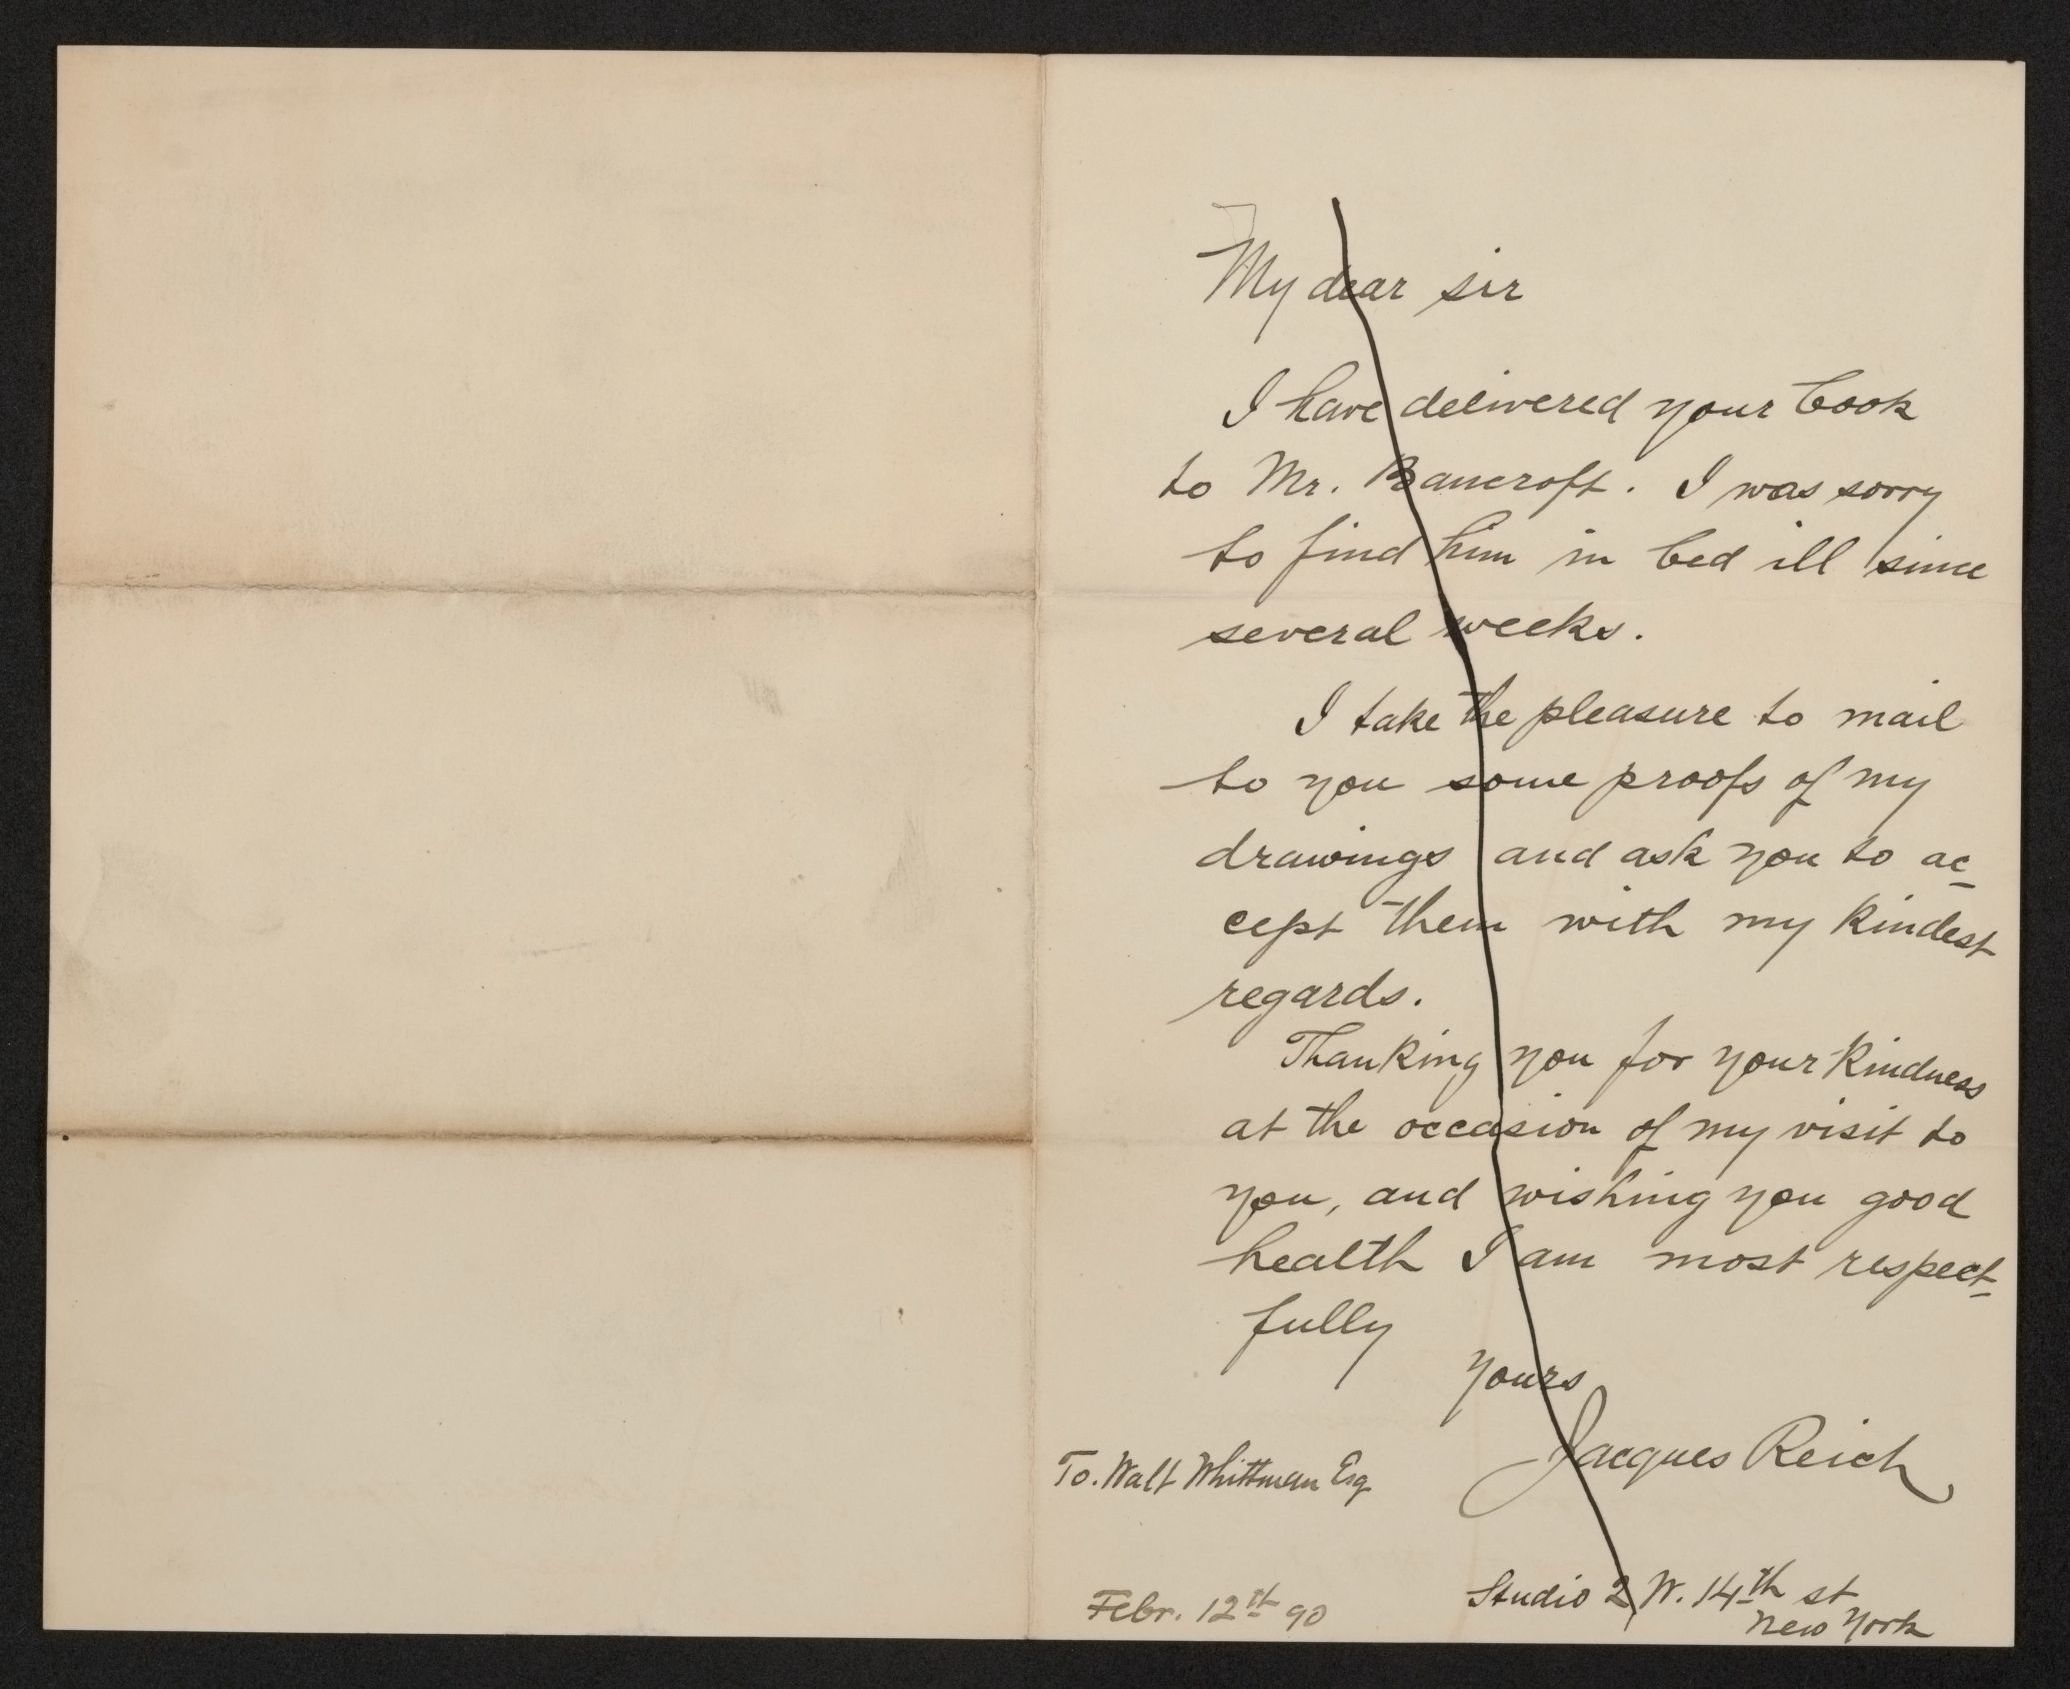 My dear sir
I have delivered your book
to Mr. Bancroft. I was sorry
to find him in bed ill since
several weeks.
I take the pleasure to mail
to you some proofs of my
drawings and ask you to ac-
cept them with my kindest
regards.
Thanking you for your kindness
at the occasion of my visit to
you, and wishing you good
health I am most respect-
fully
Yours
Jacques Reich
To. Walt Whittman Esq
Studio 2 W. 14th st
New York
Febr. 12th 90